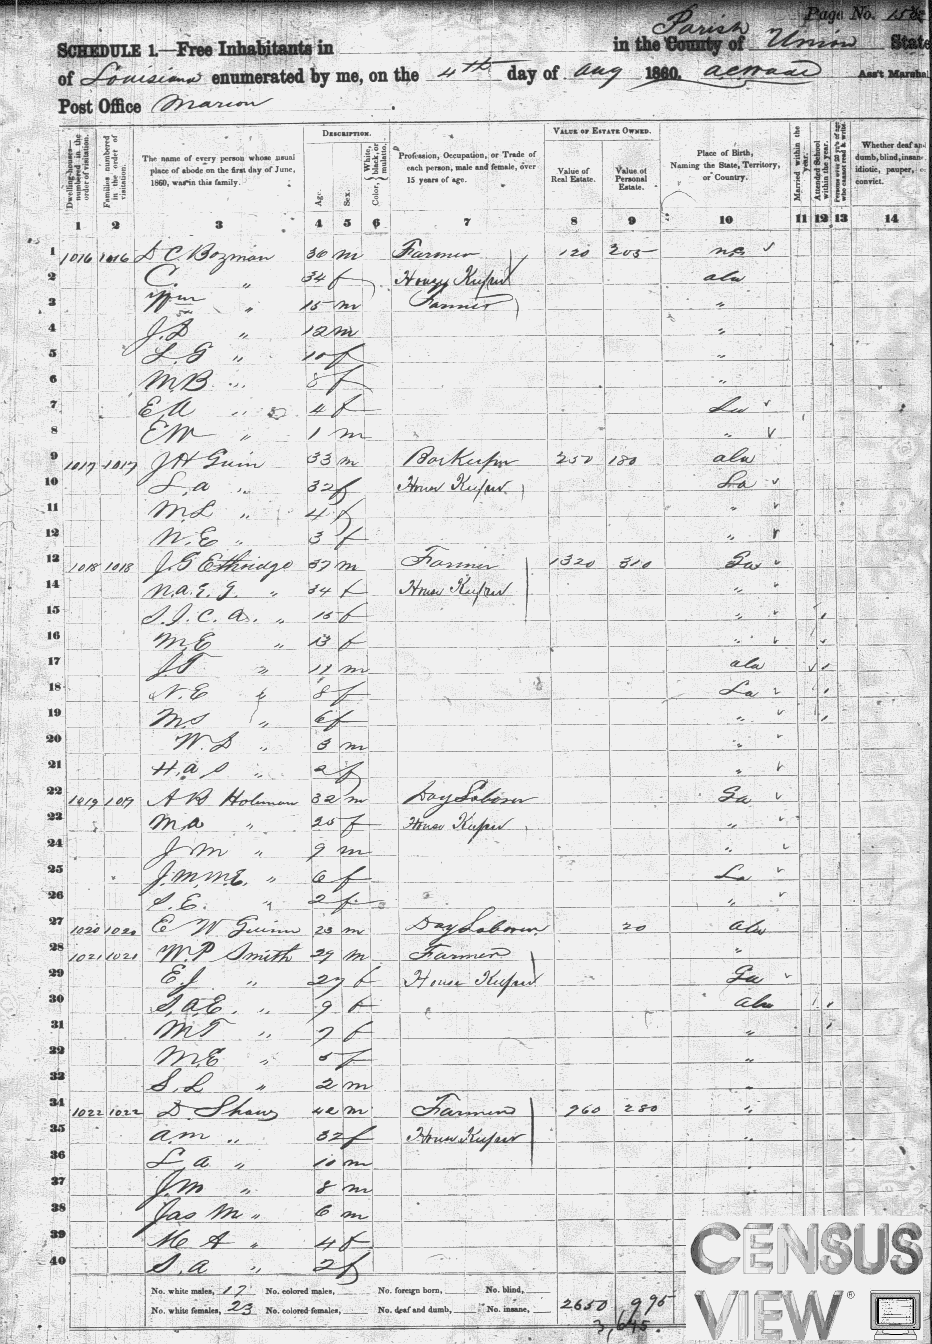 Page No.
Parish
SCHEDULE 1.—Free Inhabitants in in the County of Union State
of Louisiana enumerated by me, on the 4th day of Aug 1860. Ass't Marshal
Post Office Marion
DESCRIPTION. VALUE OF ESTATE OWNED.
Dwelling-houses—numbered in the order of visitation. Families numbered in the order of visitation. The name of every person whose usual place of abode on the first day of June, 1860, was in this family. Age. Sex. Color, White, black, or mulatto. Profession, Occupation, or Trade of each person, male and female, over 15 years of age. Value of Real Estate. Value of Personal Estate. Place of Birth, Naming the State, Territory, or Country. Married within the year. Attended School within the year. Persons over 20 y'rs of age who cannot read & write. Whether deaf and dumb, blind, insane, idiotic, pauper, or convict.
1 2 3 4 5 6 7 8 9 10 11 12 13 14
1 1016 1016 D C Bozman 36 m Farmer 120 205
2 C. " 34 f House Keeper ala
3 Wm " 15 m Farmer "
4 J. D " 12 m "
5 L. G " 10 f "
6 M. B " 8 f "
7 E A " 4 f La
8 E W " 1 m "
9 1017 1017 J H Guin 33 m 250 180 ala
10 L. a " 32 f House Keeper La
11 M L " 4 f "
12 N. E " 3 f "
13 1018 1018 J. G Ethridge 37 m Farmer 1320 310 Ga
14 n. a. E. G. " 34 f House Keeper "
15 S. J. C. A. " 15 f "
16 M E " 13 f "
17 J. T " 11 m ala
18 N. E " 8 f La
19 M S " 6 f "
20 W. D " 3 m "
21 H. a S " 2 f "
22 1019 1019 A B Holman 32 m Day Laborer Ga
23 M. a " 25 f House Keeper "
24 J m " 9 m "
25 J. M. M. E. " 6 f La
26 S. E. " 2 f "
27 1020 1020 E W Guinn 23 m Day Laborer 20 ala
28 1021 1021 W. P Smith 29 m Farmer "
29 E J " 27 f House Keeper Ga
30 S. a E. " 9 f ala
31 M T " 7 f "
32 M. E " 5 f "
33 S. L " 2 m "
34 1022 1022 D Shaw 42 m Farmer 960 280 "
35 a m " 32 f House Keeper "
36 L. a " 10 m
37 J. M " 8 m
38 Jas M " 6 m
39 M A " 4 f
40 S. a " 2 f
No. white males, 17 No. colored males, No. foreign born, No. blind,
No. white females, 23 No. colored females, No. deaf and dumb, No. insane, 2650 995
3,645.
CENSUS
VIEW®